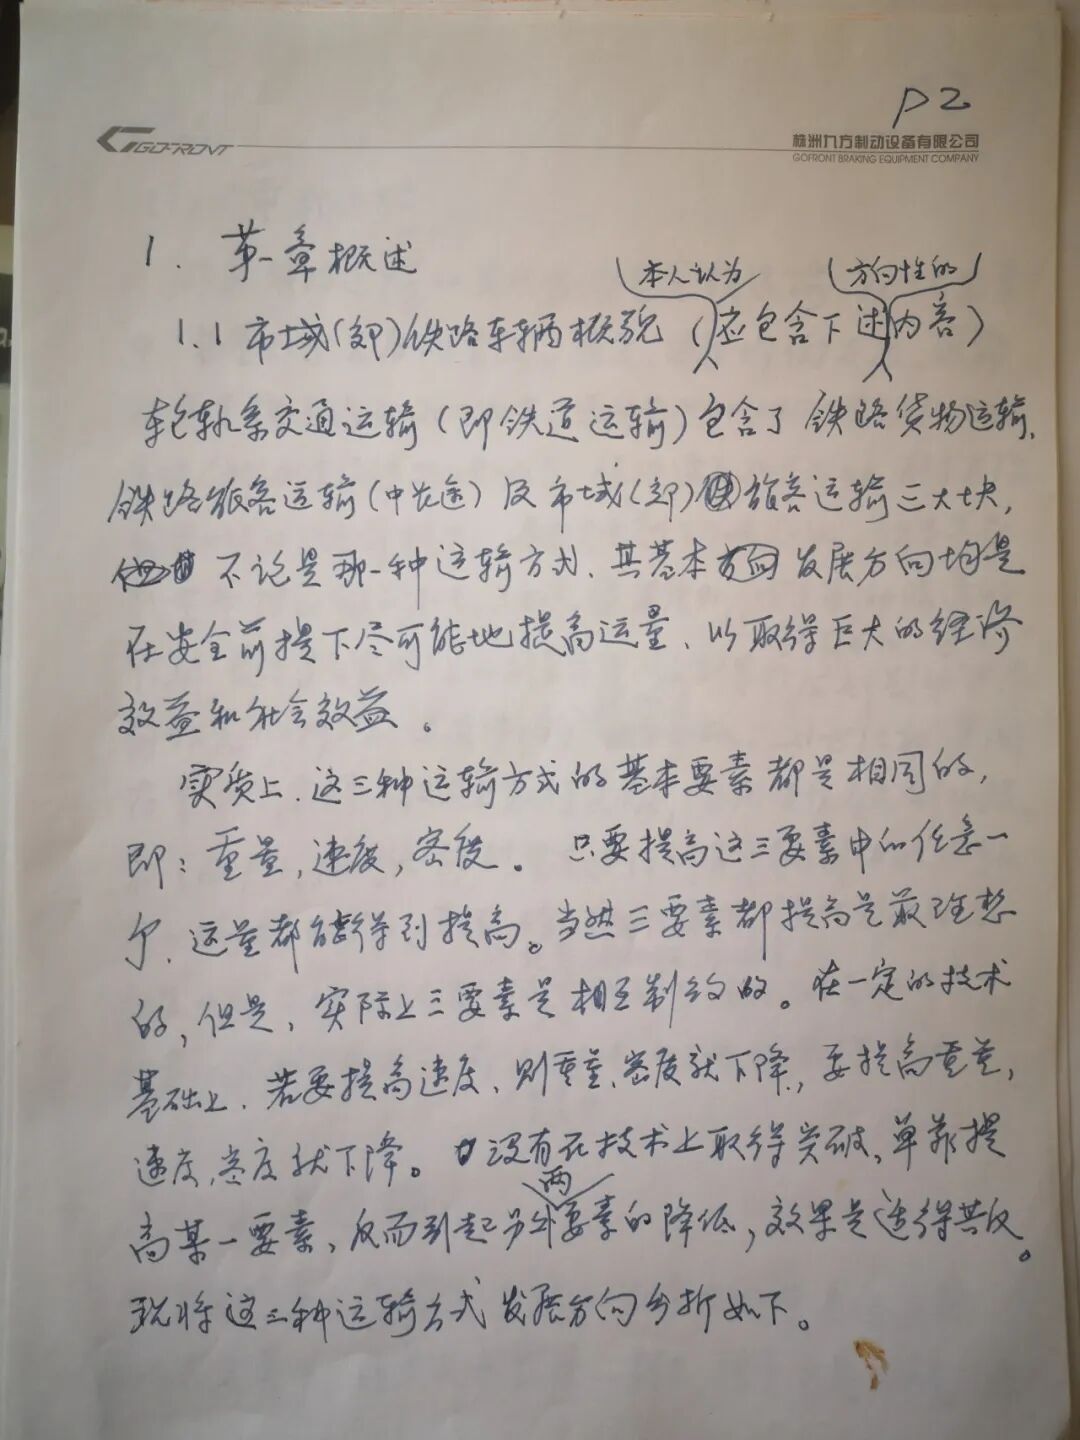 P2
GOFRONT
株洲九方制动设备有限公司
GOFRONT BRAKING EQUIPMENT COMPANY
1. 第一章概述
本人认为 方向性的
1.1 市域(郊)铁路车辆概貌（应包含下述内容）
轮轨系交通运输（即铁道运输）包含了铁路货物运输、
铁路旅客运输(中长途)及市域(郊)旅客运输三大块，
不论是那一种运输方式、其基本发展方向均是
在安全前提下尽可能地提高运量、以取得巨大的经济
效益和社会效益。
实质上、这三种运输方式的基本要素都是相同的，
即：重量，速度，密度。只要提高这三要素中的任意一
个、运量都能得到提高。当然三要素都提高是最理想
的，但是，实际上三要素是相互制约的。在一定的技术
基础上、若要提高速度、则重量、密度就下降，要提高重量，
速度、密度就下降。没有在技术上取得突破、单靠提
两
高某一要素，反而引起另外要素的降低，效果是适得其反。
现将这三种运输方式发展方向分折如下。